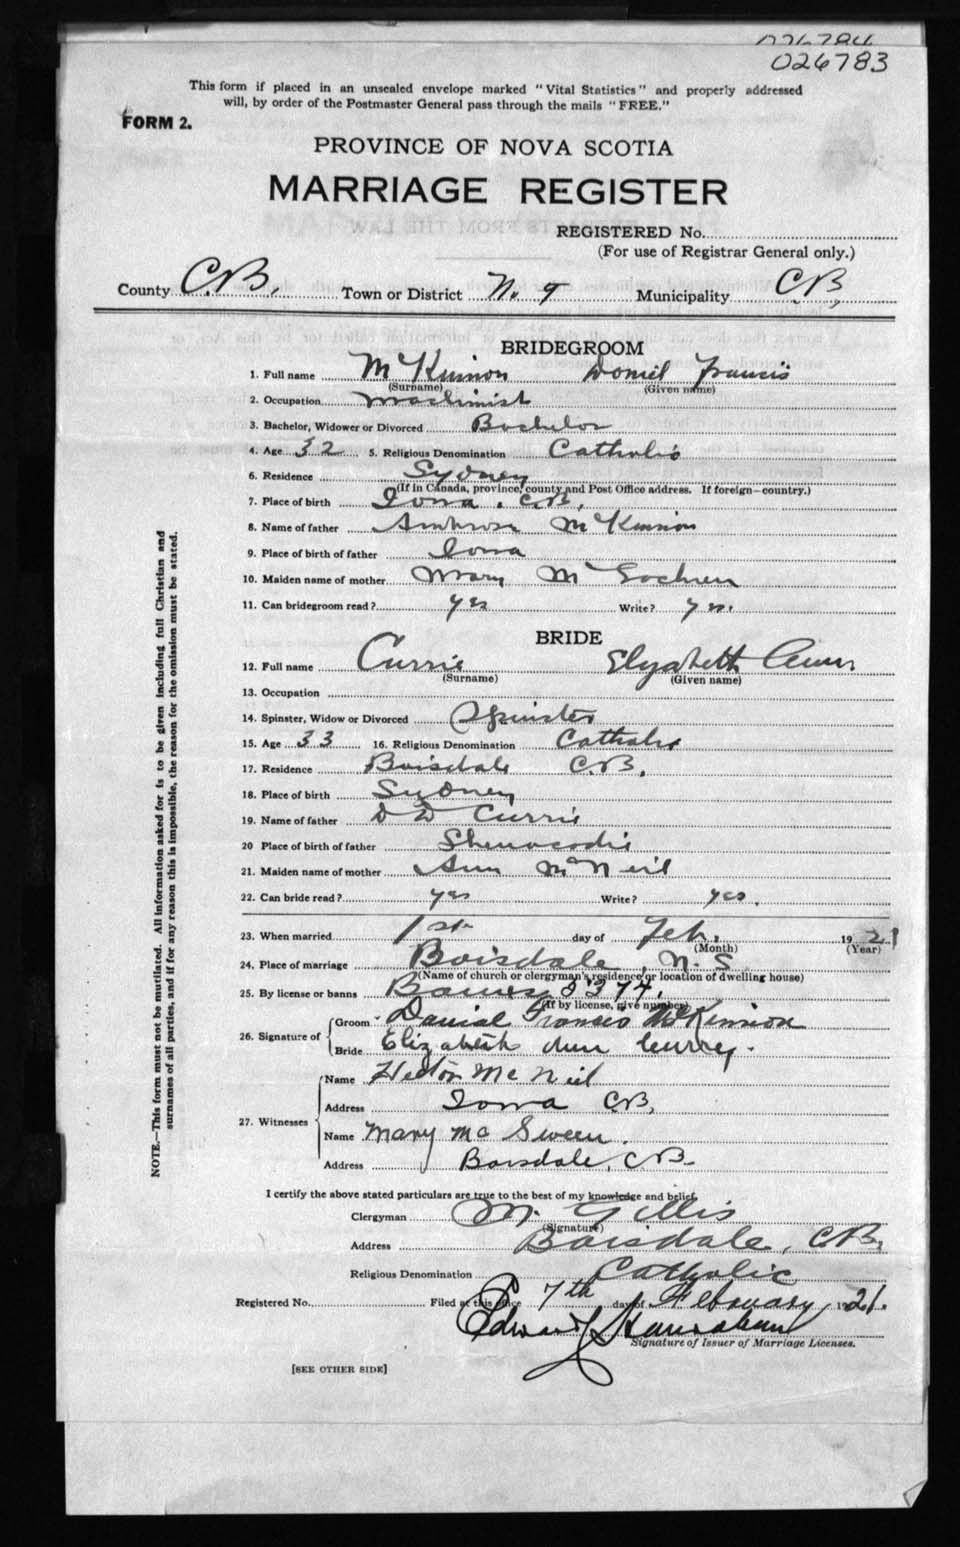 026784
026783
This form if placed in an unsealed envelope marked "Vital Statistics" and properly addressed
will, by order of the Postmaster General pass through the mails "FREE."
FORM 2.
PROVINCE OF NOVA SCOTIA
MARRIAGE REGISTER
REGISTERED No.
(For use of Registrar General only.)
County C.B. Town or District No. 9 Municipality C.B.
BRIDEGROOM
1. Full name McKinnon Daniel Francis
(Surname) (Given name)
2. Occupation Machinist
3. Bachelor, Widower or Divorced Bachelor
4. Age 32 5. Religious Denomination Catholic
6. Residence Sydney
(If in Canada, province, county and Post Office address. If foreign—country.)
7. Place of birth Iona, C.B.
8. Name of father Ambrose McKinnon
9. Place of birth of father Iona
10. Maiden name of mother Mary McEachren
11. Can bridegroom read? yes Write? yes.
BRIDE
12. Full name Currie Elizabeth Ann
(Surname) (Given name)
13. Occupation
14. Spinster, Widow or Divorced Spinster
15. Age 33 16. Religious Denomination Catholic
17. Residence Boisdale C.B.
18. Place of birth Sydney
19. Name of father D D Currie
20 Place of birth of father
21. Maiden name of mother Ann McNeil
22. Can bride read? yes Write? yes.
23. When married 1st day of Feb. 1921
(Month) (Year)
24. Place of marriage Boisdale, N.S.
(Name of church or clergyman's residence or location of dwelling house)
25. By license or banns 3374.
(If by license, give number)
26. Signature of Groom Daniel Francis McKinnon
Bride Elizabeth Ann Currey.
27. Witnesses Name Hector McNeil
Address Iona C.B.
Name Mary McSween.
Address Boisdale, C.B.
I certify the above stated particulars are true to the best of my knowledge and belief.
Clergyman M. Gillis
(Signature)
Address Boisdale, C.B.
Religious Denomination Catholic
Registered No. Filed at this office 7th day of February 1921.
Edward
Signature of Issuer of Marriage Licenses.
[SEE OTHER SIDE]
NOTE.—This form must not be mutilated. All information asked for is to be given including full Christian and
surnames of all parties, and if for any reason this is impossible, the reason for the omission must be stated.